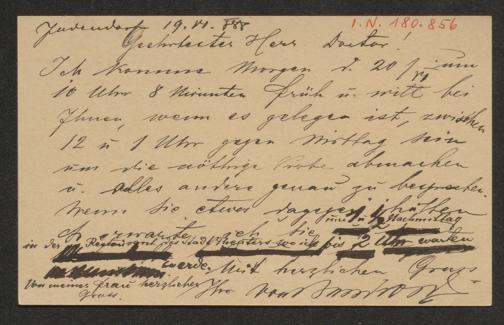 Judendorf 19. VI. 888
I.N. 180.856
Geehrtester Herr Doctor!
Ich komme Morgen d. 20/VI um
10 Uhr 8 Minunten früh u. will bei
Ihnen, wenn es gelegen ist, zwischen
12 u 1 Uhr gegen Mittag sein
um die nöthige Probe abmachen
u. alles andere genau zu besprechen.
Wenn Sie etwas dagegen hätten
so erwarte ich Sie um 1/2 Nachmittag
in der Restaurant des Stadt Theaters wo ich bis 2 Uhr warten
werde. Mit herzlichen Gruss
Von meiner Frau herzlichen
Gruss. Ihr